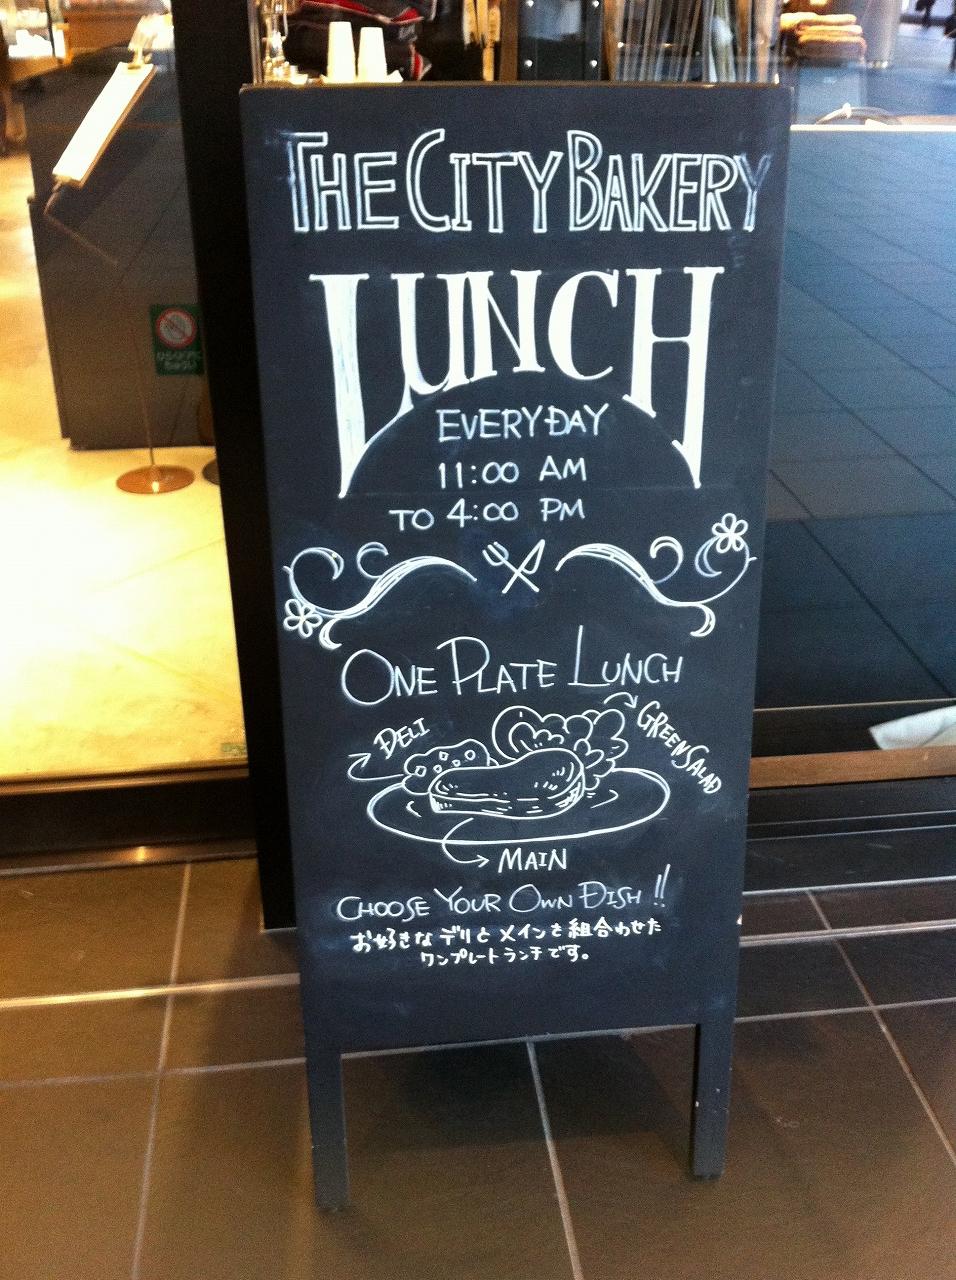 THE CITY BAKERY
LUNCH
EVERYDAY
11:00 AM
TO 4:00 PM
ONE PLATE LUNCH
DELI
GREEN SALAD
MAIN
CHOOSE YOUR OWN DISH!!
お好きなデリとメインを組合わせた
ワンプレートランチです。